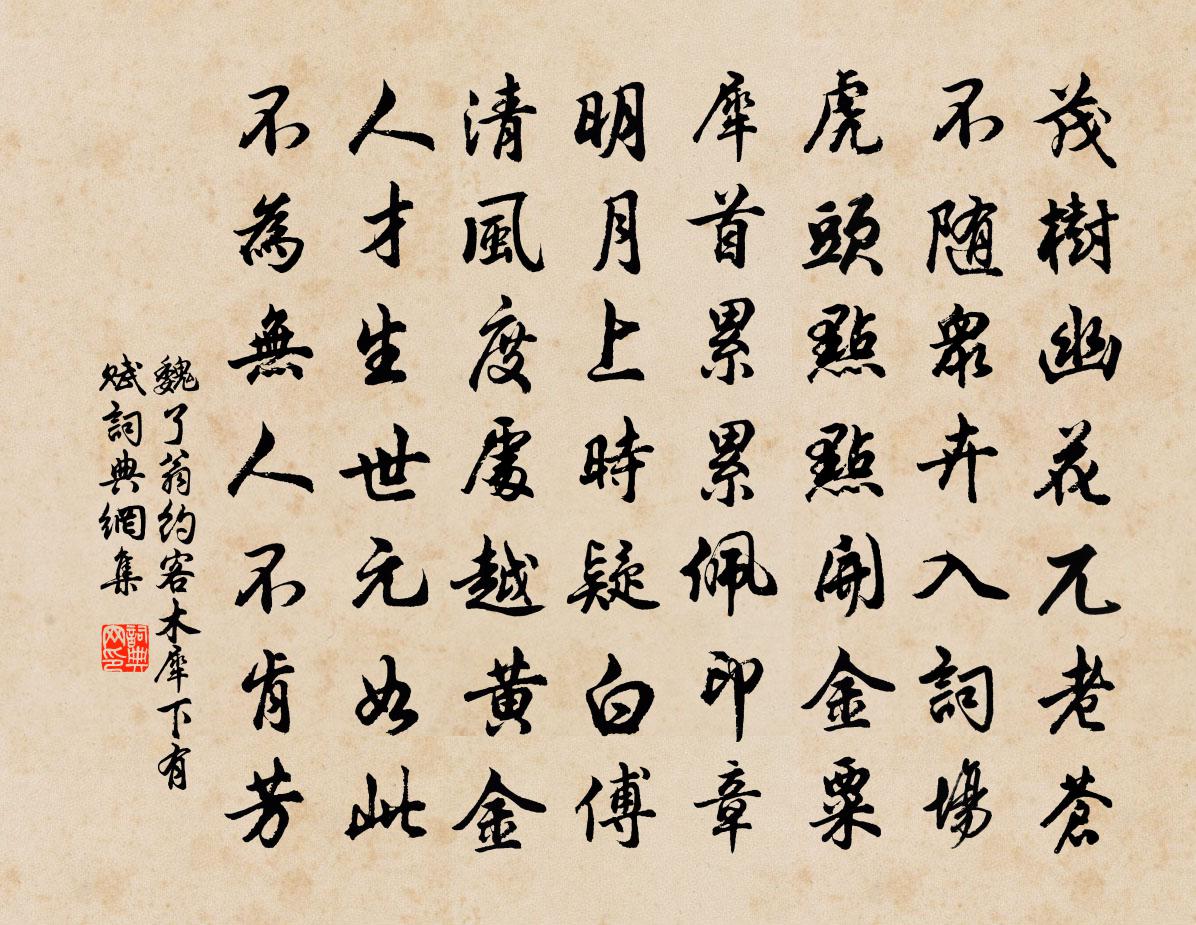 茂樹幽花兀老蒼
不随衆卉入詞場
虎頭點點開金粟
犀首累累佩印章
明月上時疑白傅
清風度處越黄金
人才生世元如此
不為無人不肯芳
魏了翁約客木犀下有
賦詞典網集
詞典
网印